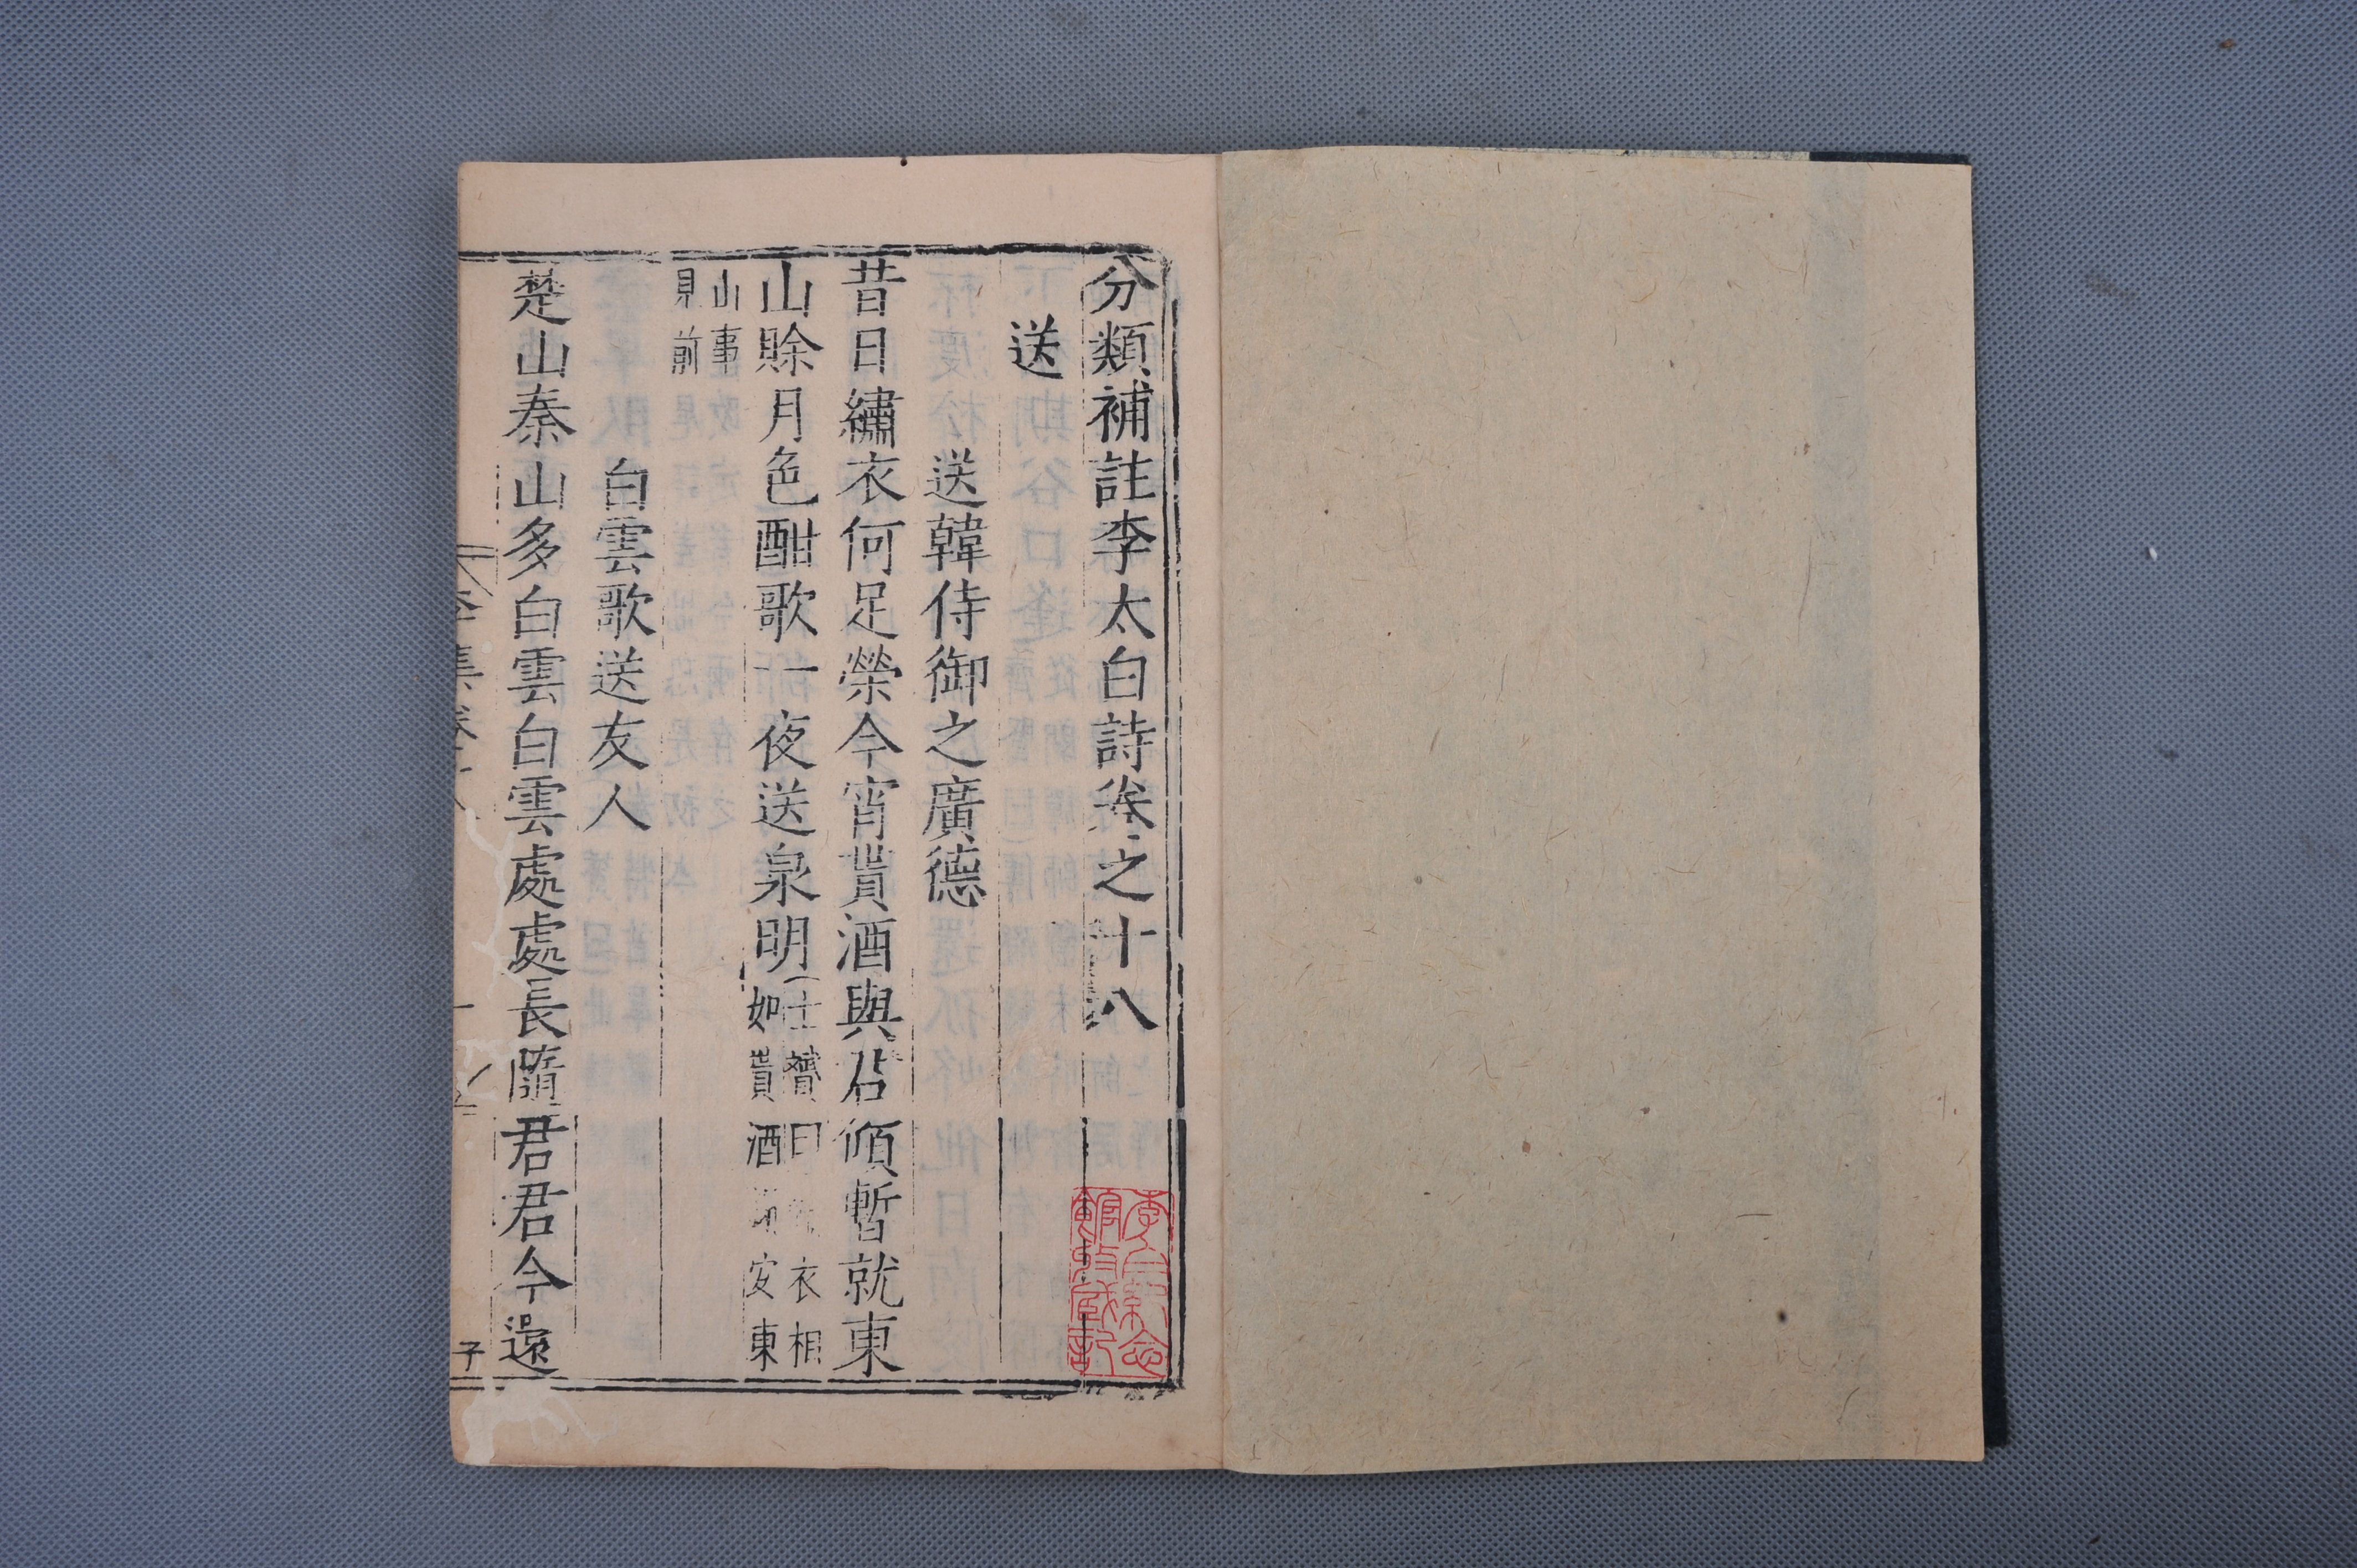 分類補註李太白詩卷之十八
送
送韓侍御之廣德
昔日繡衣何足榮今宵貰酒與君傾暫就東
山賖月色酣歌一夜送泉明
士贇曰衣相
如貰酒安東
山事
見前
白雲歌送友人
楚山秦山多白雲白雲處處長隨君君今還
李集卷十八